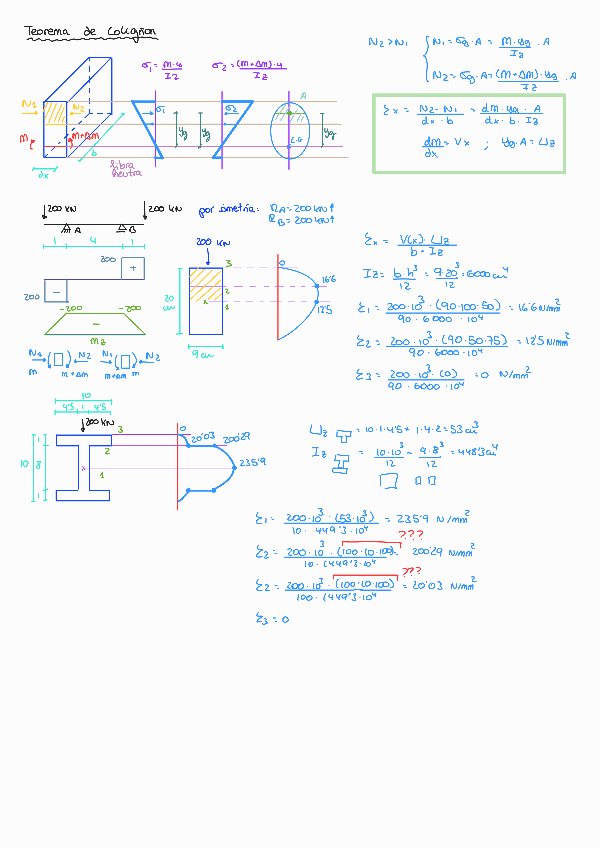 Teorema de Colignon
σ1 = M·y / Iz
σ2 = (M+ΔM)·y / Iz
N2 > N1
N1 = σg · A = M·yg / Iz · A
N2 = σg · A = (M+ΔM)·yg / Iz · A
A
N1
N2
σ1
σ2
yg
yg
yg
yg
M
M+ΔM
b
dx
C.G
fibra
neutra
Σx = N2-N1 / dx·b = dM·yg·A / dx·b·Iz
dM / dx = Vx ; yg·A = Uz
200 kN
200 kN
A
B
por simetría: RA = 200 kN↑
RB = 200 kN↑
1
4
1
200
+
200
-
-200
-200
-
Mz
N1
N2
N1
N2
M
M+ΔM
M+ΔM
M
200 kN
3
2
1
x
20
cm
9 cm
0
16'6
12'5
Σx = V(x)·Uz / b·Iz
Iz = b·h³ / 12 = 9·20³ / 12 = 6000 cm⁴
Σ1 = 200·10³·(90·100·50) / 90·6000·10⁴ = 16'6 N/mm²
Σ2 = 200·10³·(90·50·75) / 90·6000·10⁴ = 12'5 N/mm²
Σ3 = 200·10³·(0) / 90·6000·10⁴ = 0 N/mm²
10
4'5 1 4'5
200 kN
3
2
1
x
10
1
8
1
0
20'03
200'29
235'9
Uz = 10·1·4'5 + 1·4·2 = 53 cm³
Iz = 10·10³ / 12 - 9·8³ / 12 = 449'3 cm⁴
Σ1 = 200·10³·(53·10³) / 10·449'3·10⁴ = 235'9 N/mm²
???
Σ2 = 200·10³·(100·10·100) / 10·(449'3·10⁴ = 200'29 N/mm²
???
Σ2 = 200·10³·(100·10·100) / 100·(449'3·10⁴ = 20'03 N/mm²
Σ3 = 0